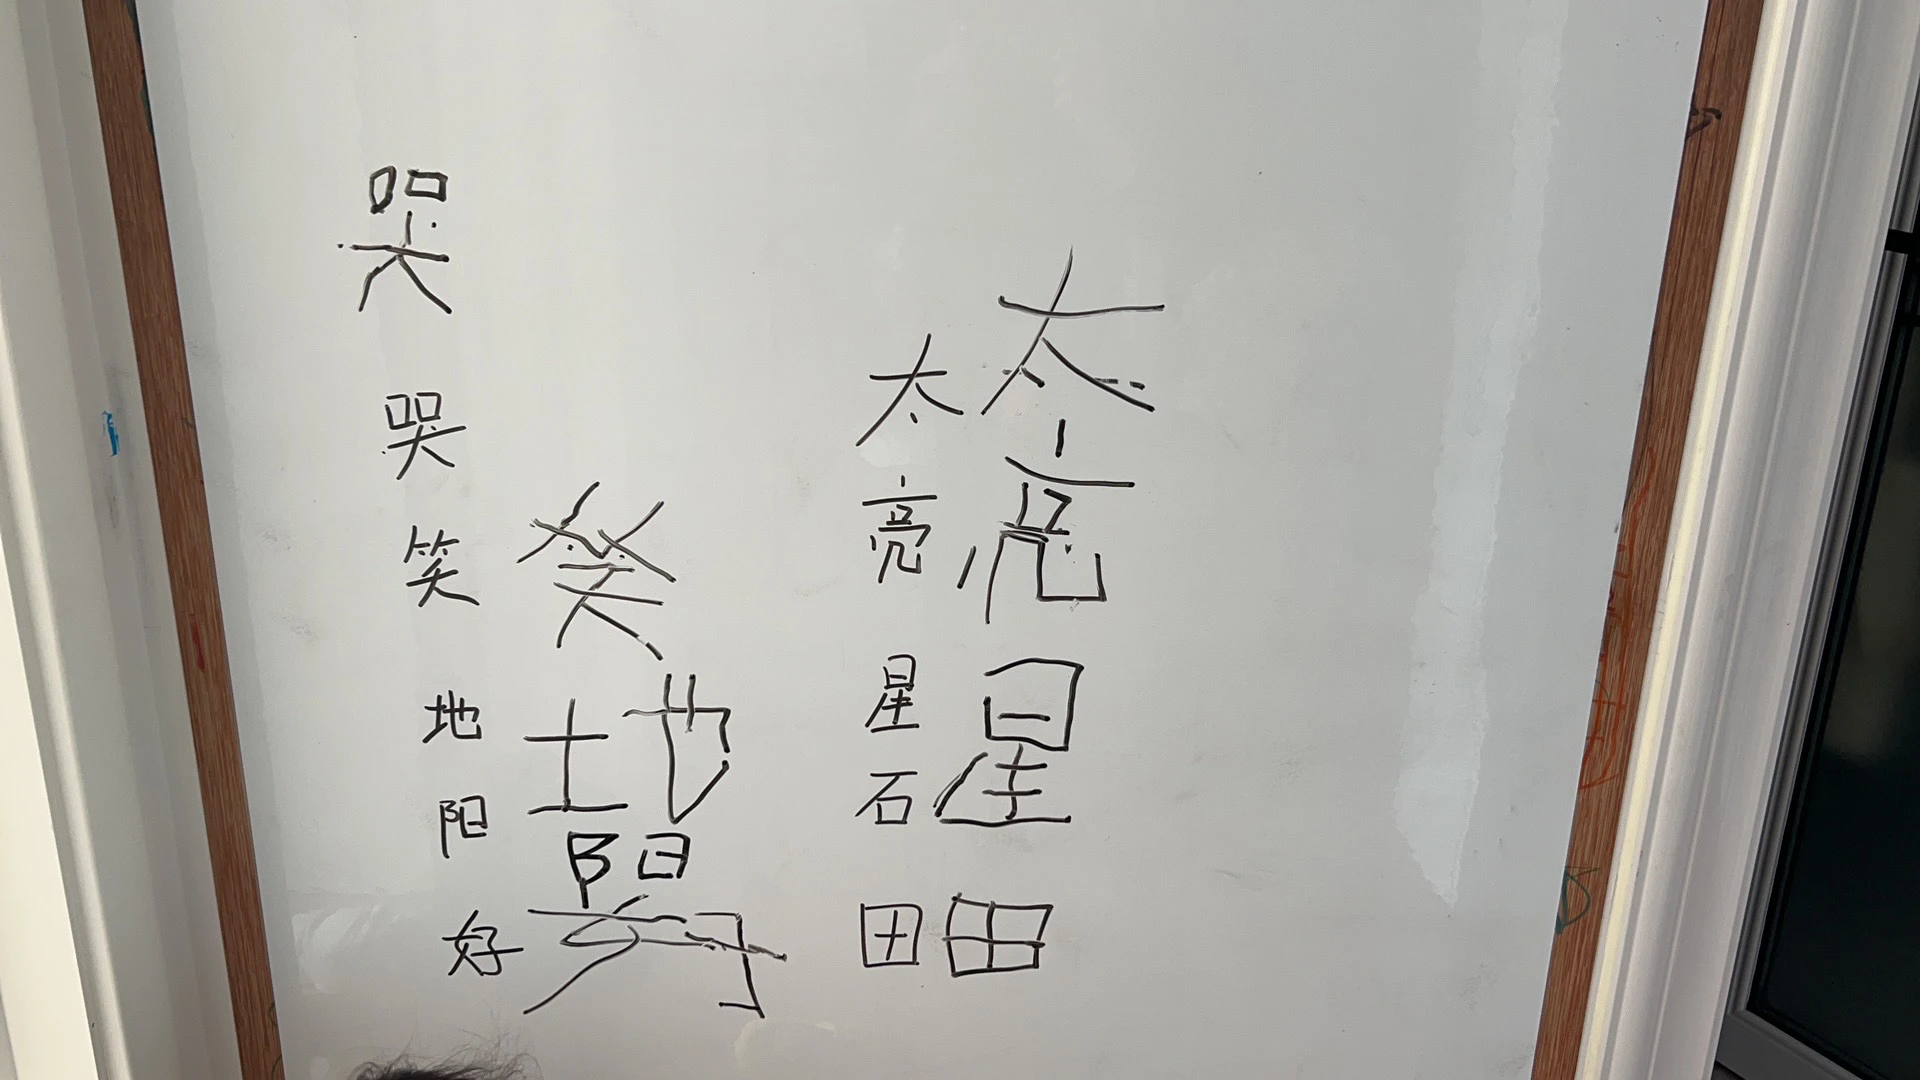 哭
哭
笑 笑
地 地
阳 阳
好 好
太 太
亮 亮
星 星
石
田 田